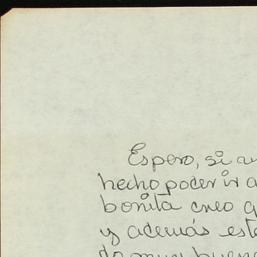 Espero, si
hecho poder ir a
bonita creo q
y además est
muy buen